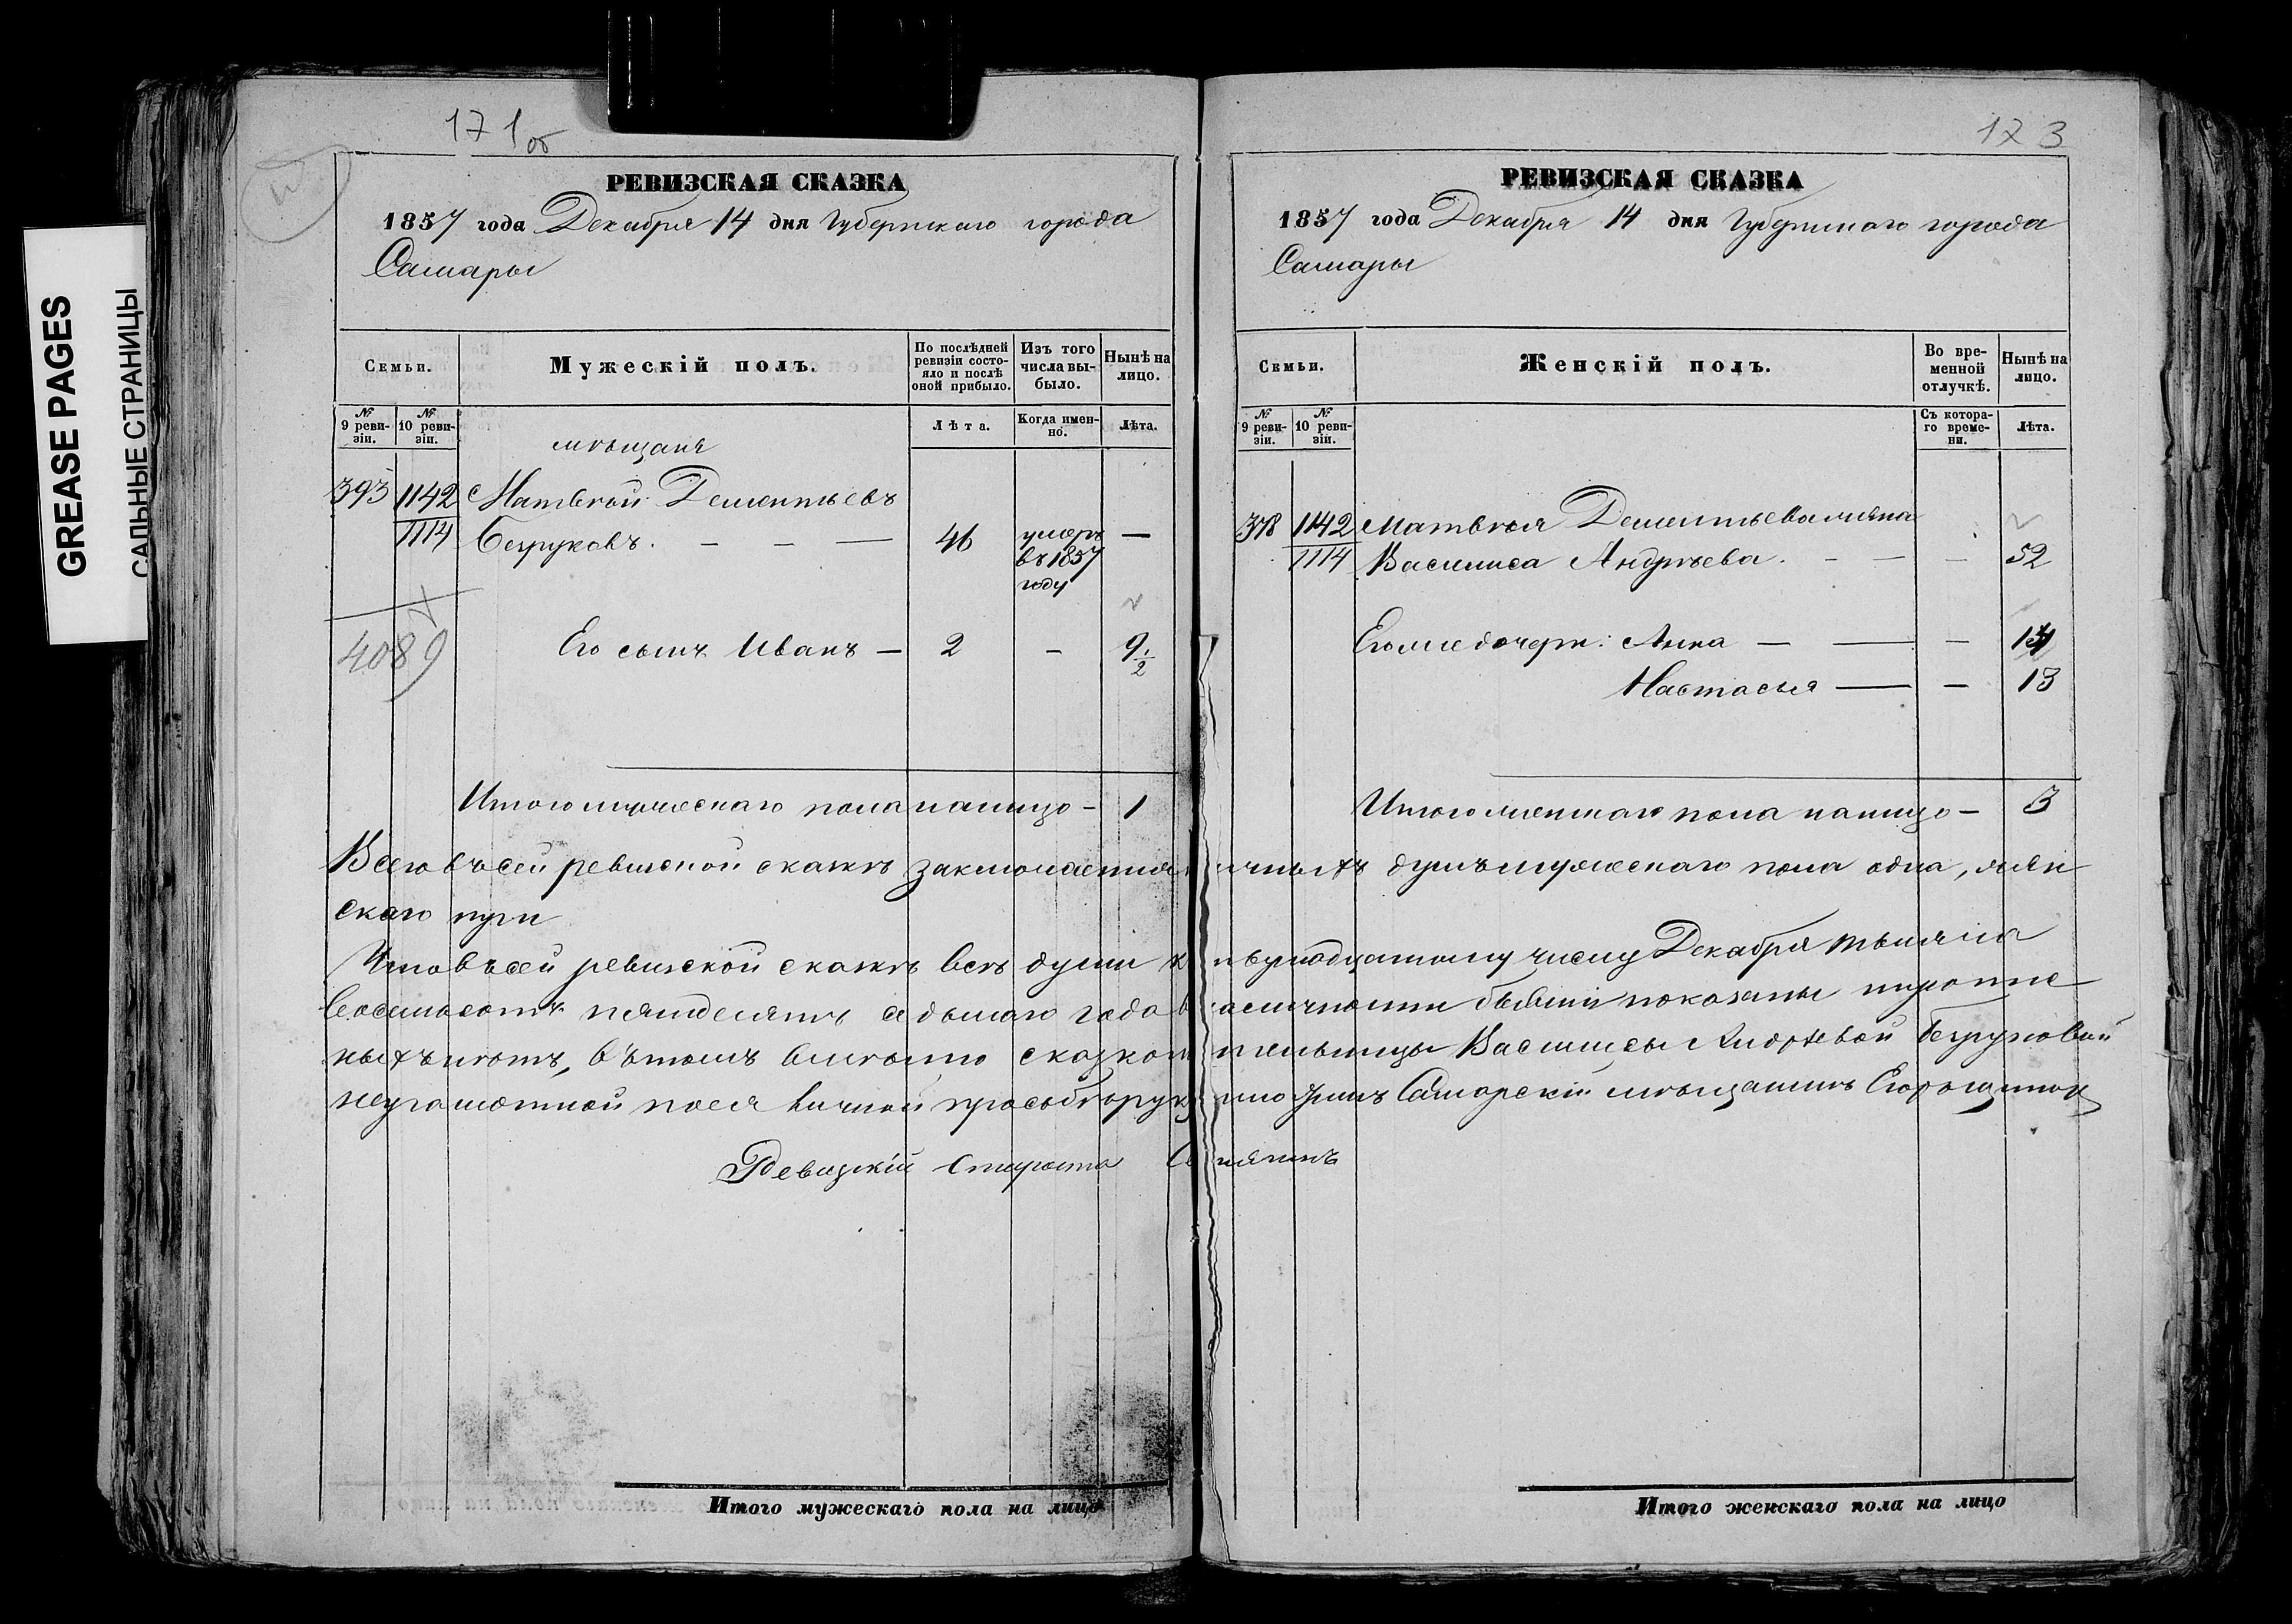 GREASE PAGES
САЛЬНЫЕ СТРАНИЦЫ
171об
РЕВИЗСКАЯ СКАЗКА
1857 года Декабря 14 дня Губернскаго города
Самары
Семьи.
Мужескій полъ.
По послѣдней ревизіи состояло и послѣ оной прибыло.
Изъ того числа выбыло.
Нынѣ на лицо.
№ 9 ревизіи.
№ 10 ревизіи.
Лѣта.
Когда именно.
Лѣта.
мѣщаня
393 1142 Матвѣй Дементьевъ
1114 Безруковъ. – – — 46 умеръ въ 1857 году —
4089
Его сынъ Иванъ — 2 – 9 1/2
Итого мужескаго пола налицо – 1
173
РЕВИЗСКАЯ СКАЗКА
1857 года Декабря 14 дня Губернскаго города
Самары
Семьи.
Женскій полъ.
Во временной отлучкѣ.
Нынѣ на лицо.
№ 9 ревизіи.
№ 10 ревизіи.
Съ котораго времени.
Лѣта.
378 1142 Матвѣя Дементьева жена
1114 Василиса Андрѣева. – — — 52
Его же дочери: Анна — — — 14
Настасья — — 13
Итого женскаго пола налицо – 3
Всего въ сей ревиской сказкѣ заключается наличныхъ душъ мужескаго пола одна, жен
скаго три
Что въ сей ревизской сказкѣ всѣ души къ четырнадцатому числу Декабря тысяча
восемьсотъ пятдесятъ седьмаго года въ наличности бывшія показаны и пропис
ныхъ нѣтъ, въ томъ вмѣсто сказкоподательницы Василисы Андрѣевой Безруковой
неграмотной по ея личной прозьбѣ руку приложилъ Самарскій мѣщанинъ Егоръ
Ревизскій Староста
Итого мужескаго пола на лицо
Итого женскаго пола на лицо